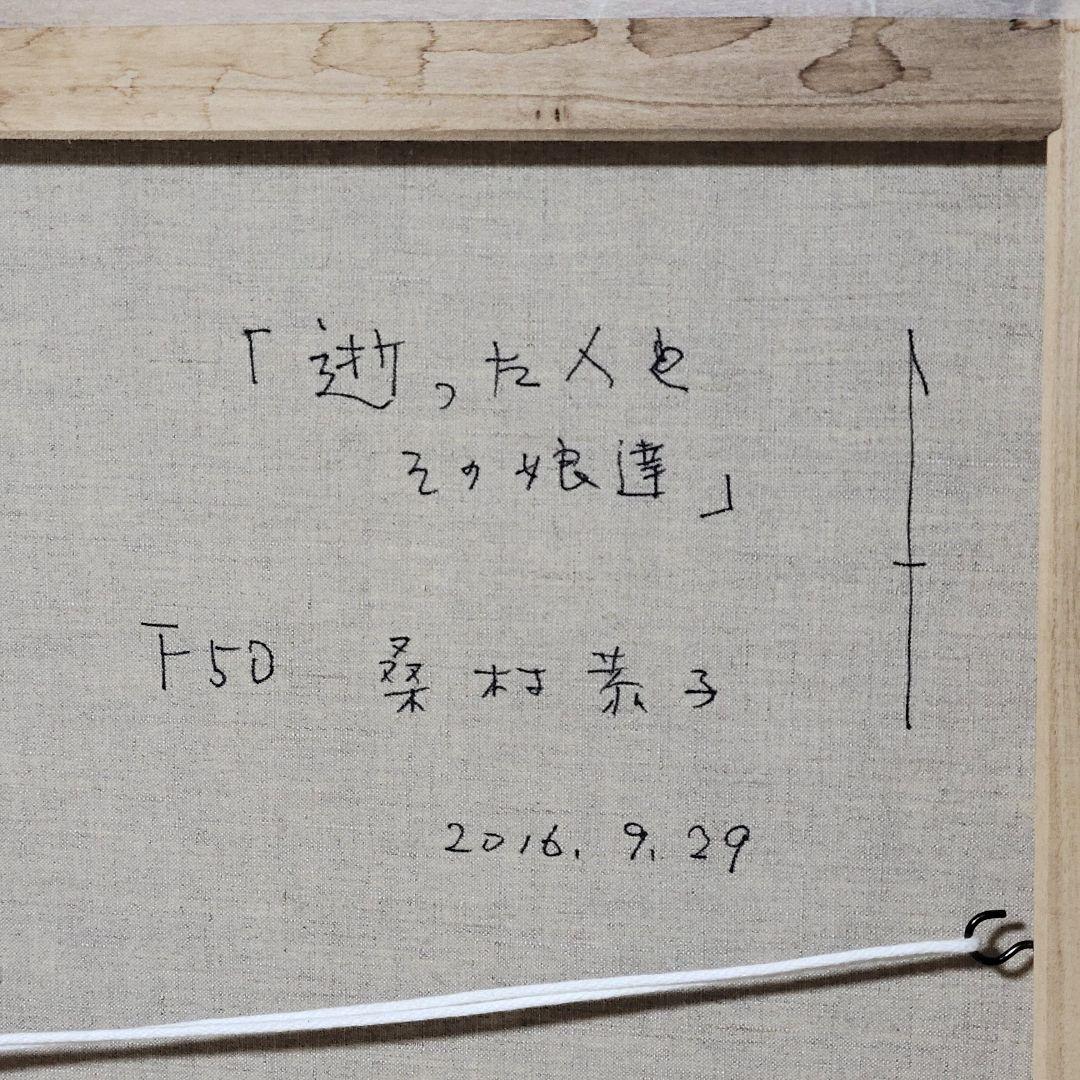 「逝った人と
その娘達」
F50 桑村恭子
2016. 9. 29